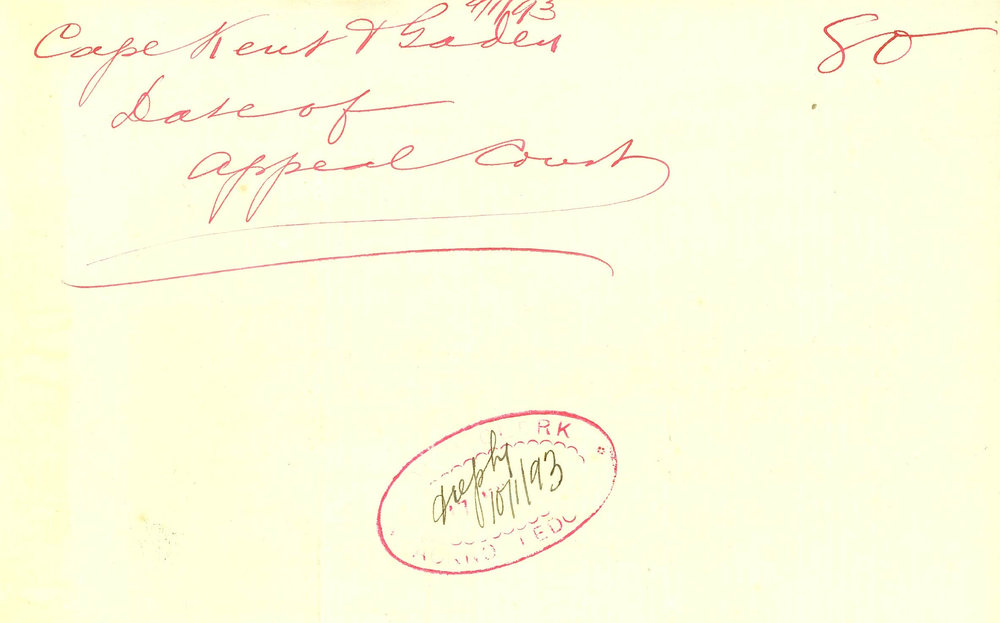 9/1/93
Cape Kent & Gaden
80
Date of
Appeal Court
RK
reply
10/1/93